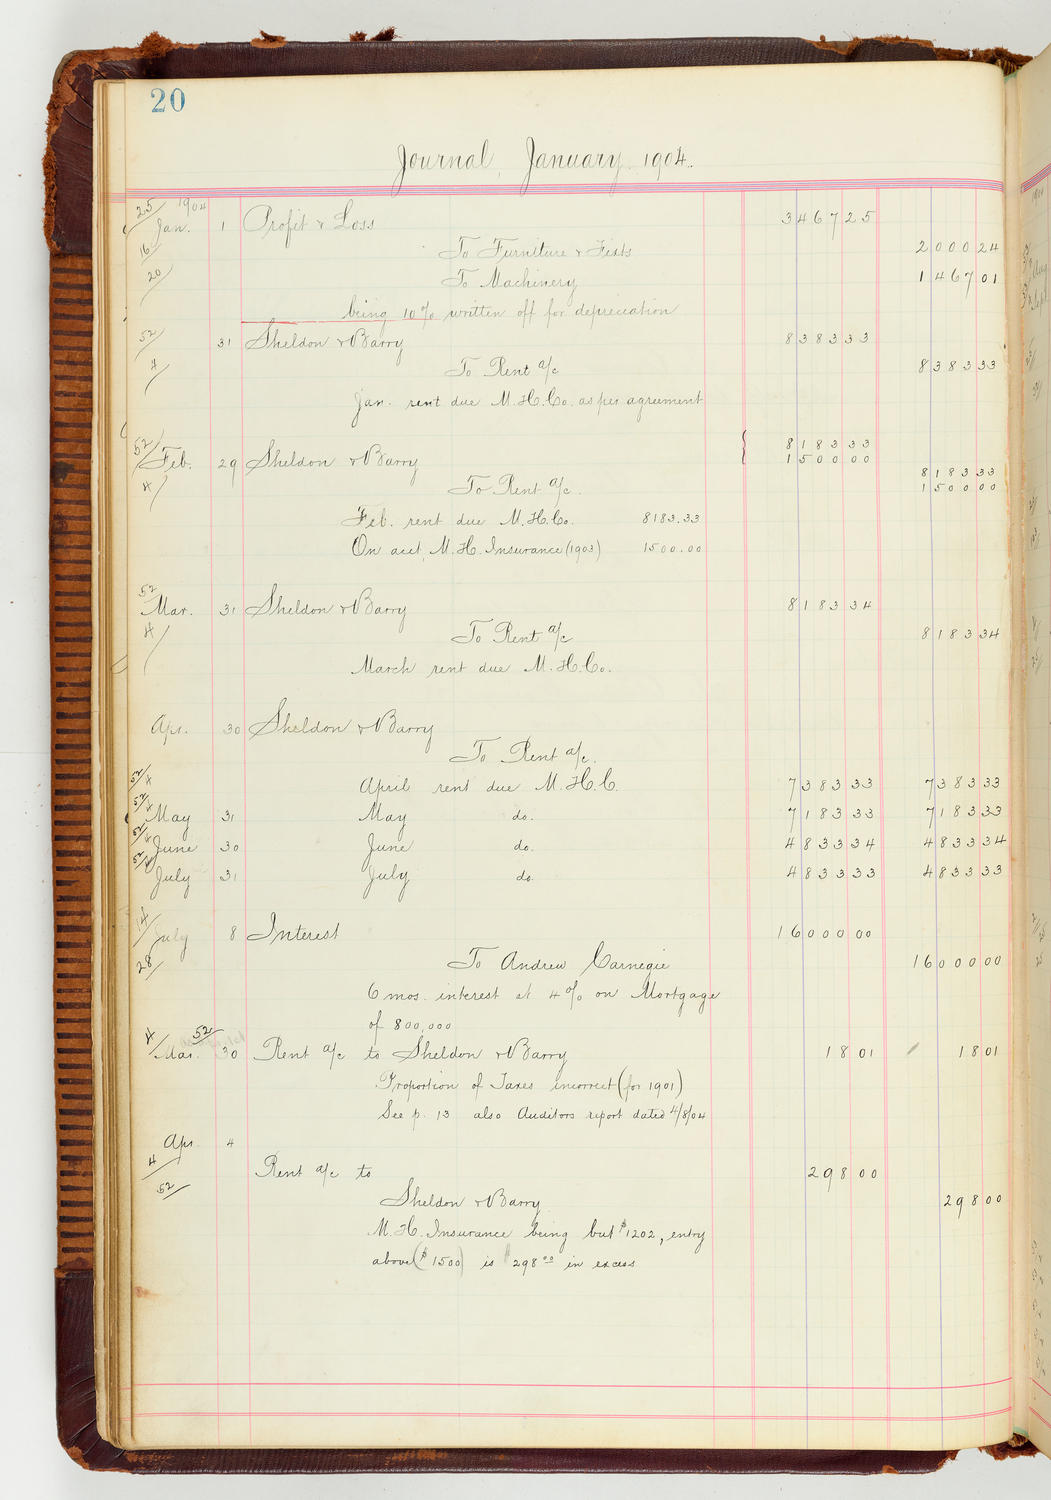 20
Journal, January 1904.
25/ 1904
Jan. 1 Profit & Loss 3467 25
16/ To Furniture & Fixts 2000 24
20/ To Machinery 1467 01
being 10% written off for depreciation
52/ 31 Sheldon & Barry 8383 33
4/ To Rent a/c 8383 33
Jan. rent due M.H.Co. as per agreement
52/ 8183 33
Feb. 29 Sheldon & Barry 1500 00
8183 33
4/ To Rent a/c. 1500 00
Feb. rent due M.H.Co. 8183.33
On acct. M.H. Insurance (1903) 1500.00
52/
Mar. 31 Sheldon & Barry 8183 34
4/ To Rent a/c 8183 34
March rent due M.H.Co.
Apr. 30 Sheldon & Barry
To Rent a/c.
52/4 April rent due M.H.C. 7383 33 7383 33
52/4 May 31 May do. 7183 33 7183 33
52/4 June 30 June do. 4833 34 4833 34
52/4 July 31 July do. 4833 33 4833 33
14/ July 8 Interest 16000 00
28/ To Andrew Carnegie 16000 00
6 mos. interest at 4% on Mortgage
of 800,000
4/ 52/
Mar. 30 Rent a/c to Sheldon & Barry 18 01 18 01
Proportion of Taxes incorrect (for 1901)
See p. 13 also Auditors report dated 4/8/04
Apr 4
4/ Rent a/c to 298 00
52/ Sheldon & Barry 298 00
M.H. Insurance being but $1202, entry
above ($1500) is $298 00 in excess